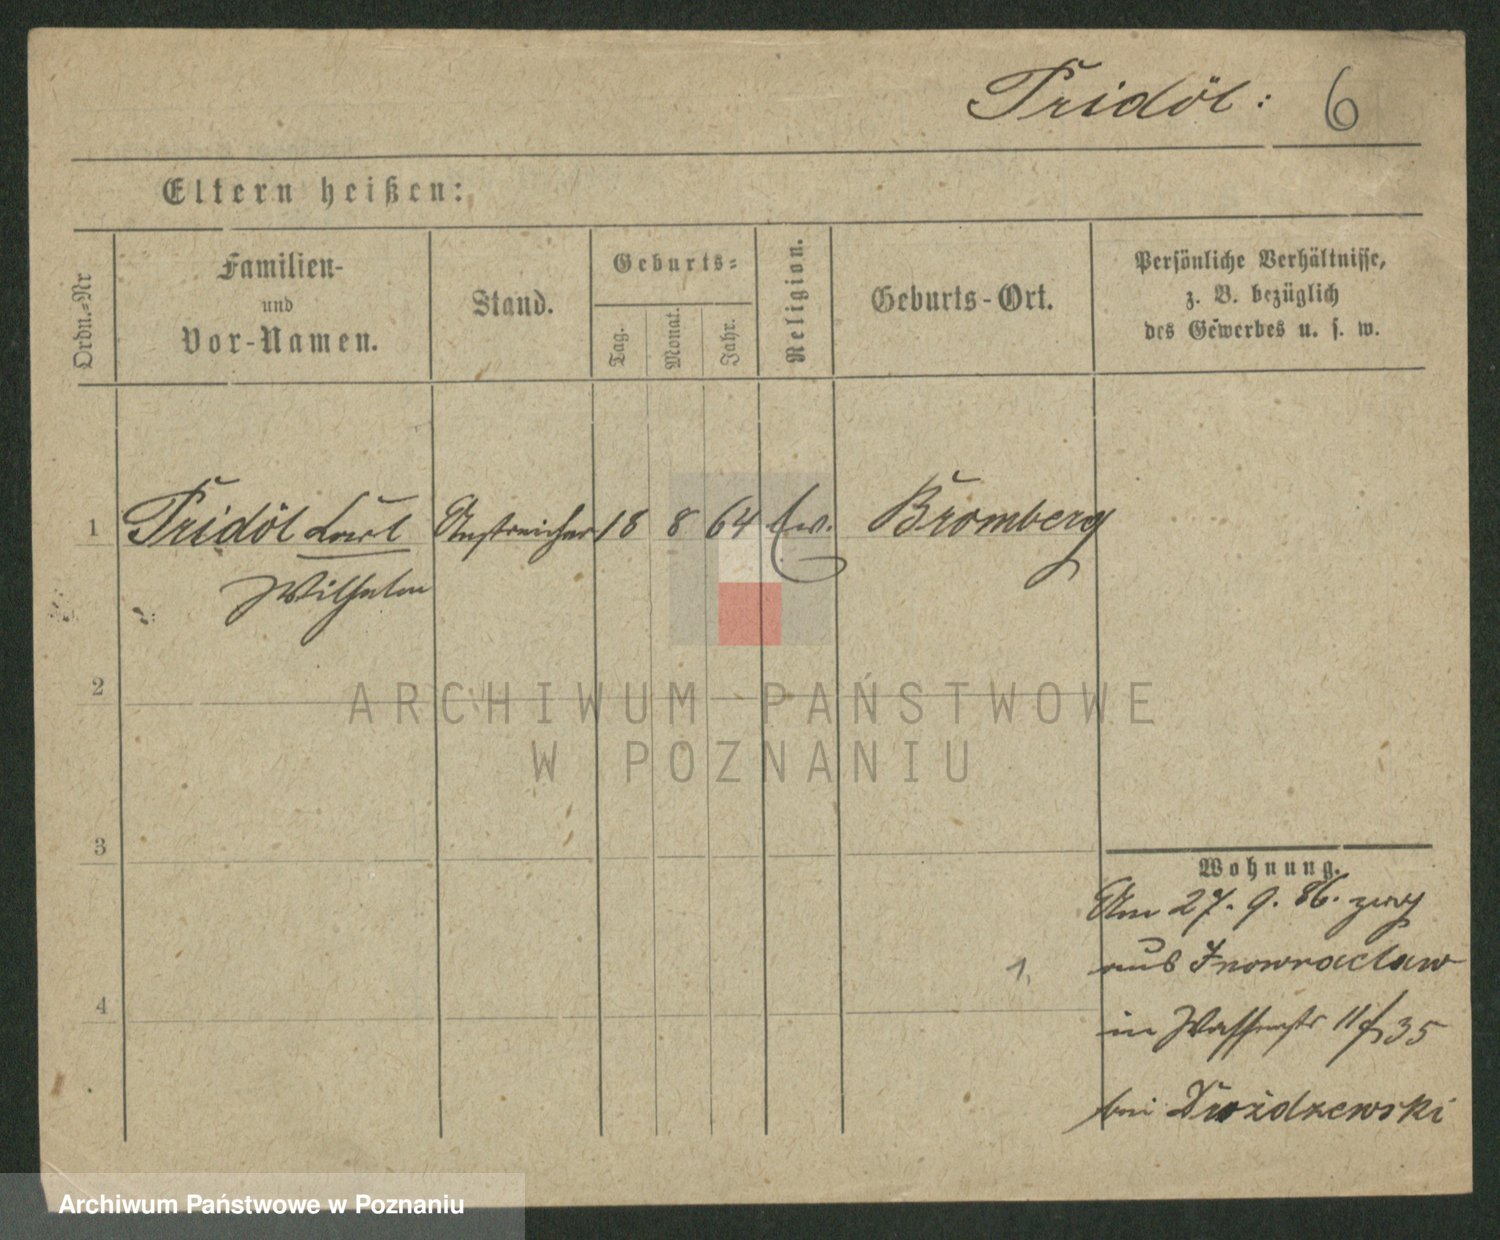 Fridöl: 6
Eltern heißen:
Ordn.=Nr
Familien-
und
Vor-Namen.
Stand.
Geburts=
Tag.
Monat.
Jahr.
Religion.
Geburts-Ort.
Persönliche Verhältnisse,
z. B. bezüglich
des Gewerbes u. s. w.
1 Fridöl Karl Anstreicher 18 8 64 Ev. Bromberg
Wilhelm
2
ARCHIWUM PAŃSTWOWE
W POZNANIU
3
Wohnung.
Am 27. 9. 86. zuzg
aus Inowraclaw
1,
4
in Wasserstr 11/35
bei Drożdzewski
Archiwum Państwowe w Poznaniu